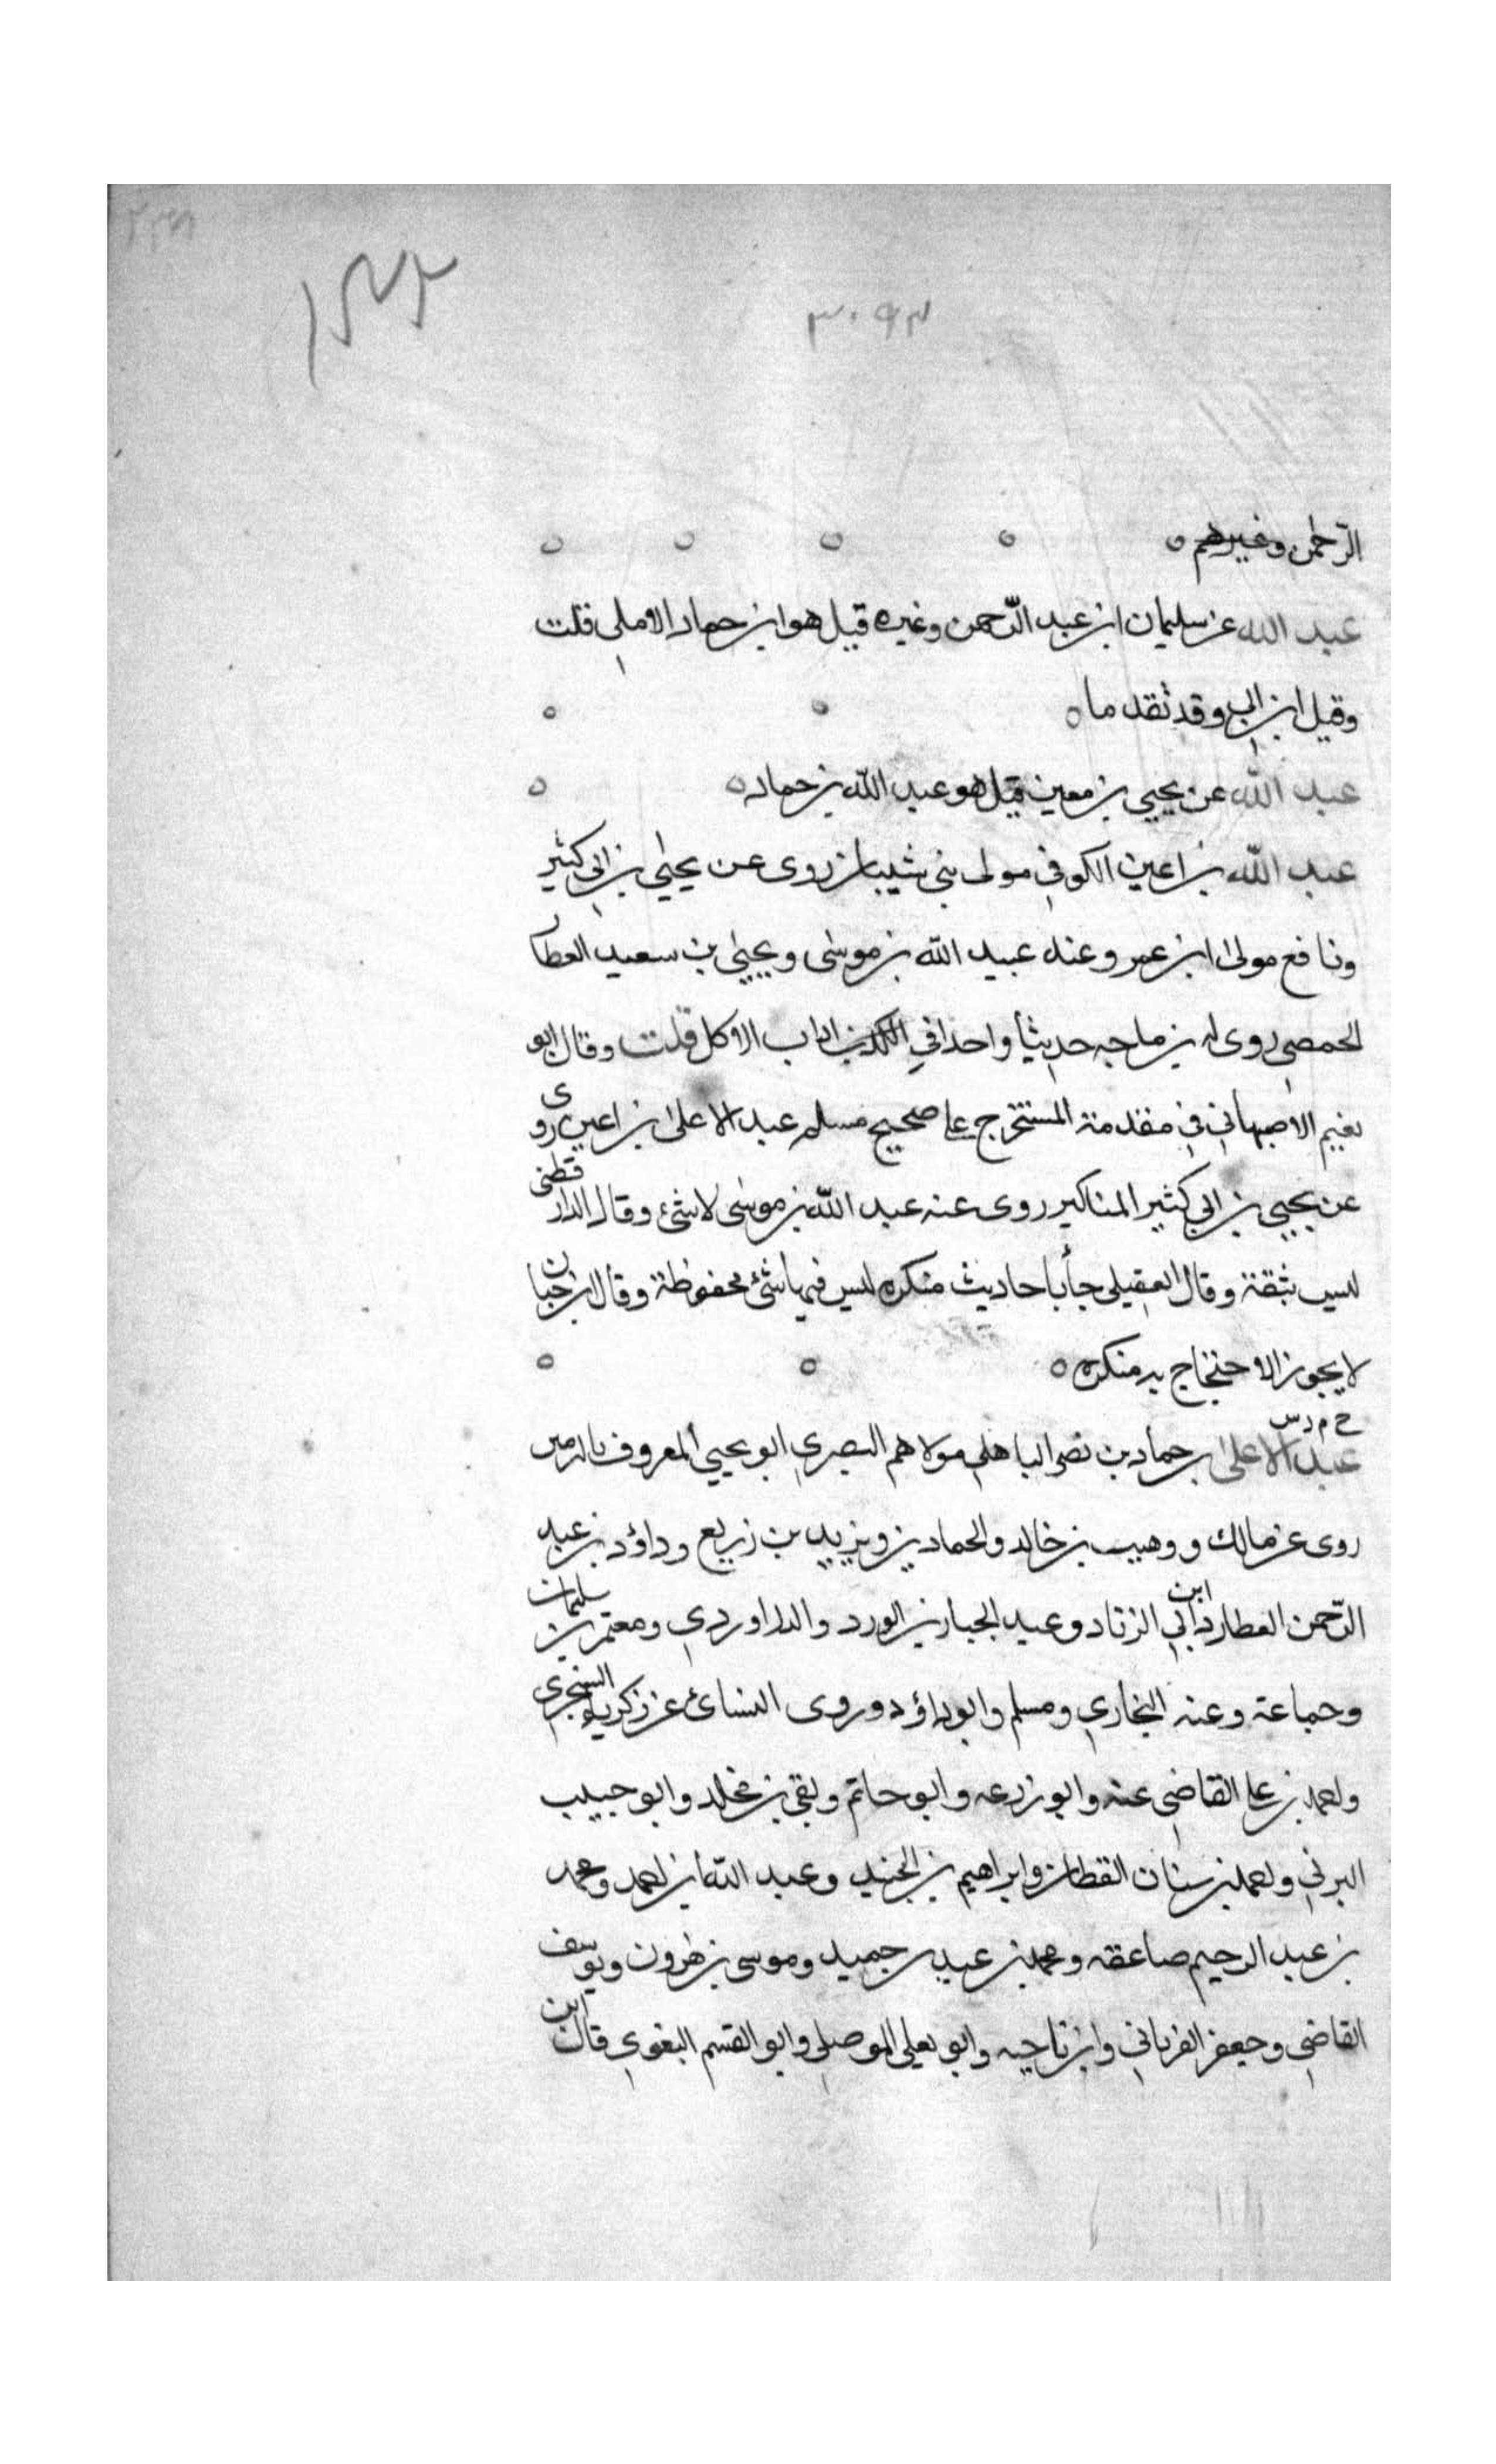 ٣٠٩٣
الرّحمن وغيرهم ٥
عبد الله عن سليمان ابن عبد الرّحمن وغيره قيل هو ابن حماد الاملي قلت
وقيل ابن ابي وقد تقدما ٥
عبد الله عن يحيي بن معين قيل هو عبد الله بن حماد ٥
عبد الله بن اعين الكوفي مولى بني شيبان روى عن يحيى بن ابي كثير
ونافع مولى ابن عمر وعنه عبيد الله بن موسى ويحيى بن سعيد العطار
الحمصي روى له بن ماجه حديثاً واحدا في اداب الاكل قلت وقال ابو
نعيم الاصبهاني في مقدمة المستخرج على صحيح مسلم عبد الاعلى بن اعين روى
عن يحيي بن ابي كثير المناكير روى عنه عبد الله بن موسى لا شئ وقال الدار قطني
ليس بثقة وقال العقيلي جأ باحاديث منكره ليس فيها شئ محفوظة وقال ابن حبان
لا يجوز الاحتجاج به منكره ٥
خ م د س
عبد الاعلى بن حماد بن نصر الباهلي مولاهم البصري ابو يحيي المعروف بالنرسي
روى عن مالك ووهيب بن خالد والحمادين ويزيد بن زريع وداؤد بن عبد
الرّحمن العطار وابن ابي الزناد وعبد الجبار بن الورد والدراوردي ومعتمر بن سليمان
وجماعة وعنه البخاري ومسلم وابو داؤد وروى النسائ عن زكريا السنجري
واحمد بن على القاضي عنه وابو زرعه وابو حاتم وبقي بن مخلد وابو حبيب
البرني واحمد بن سنان القطان وابراهيم بن الجنيد وعبد الله بن احمد ومحمد
بن عبد الرحيم صاعقه ومحمد بن عبد بن حميد وموسى بن هرون ويوسف
القاضي وجعفر الفريابي وابن ناجيه وابو يعلى الموصلي وابو القسم البغوي قال ابن